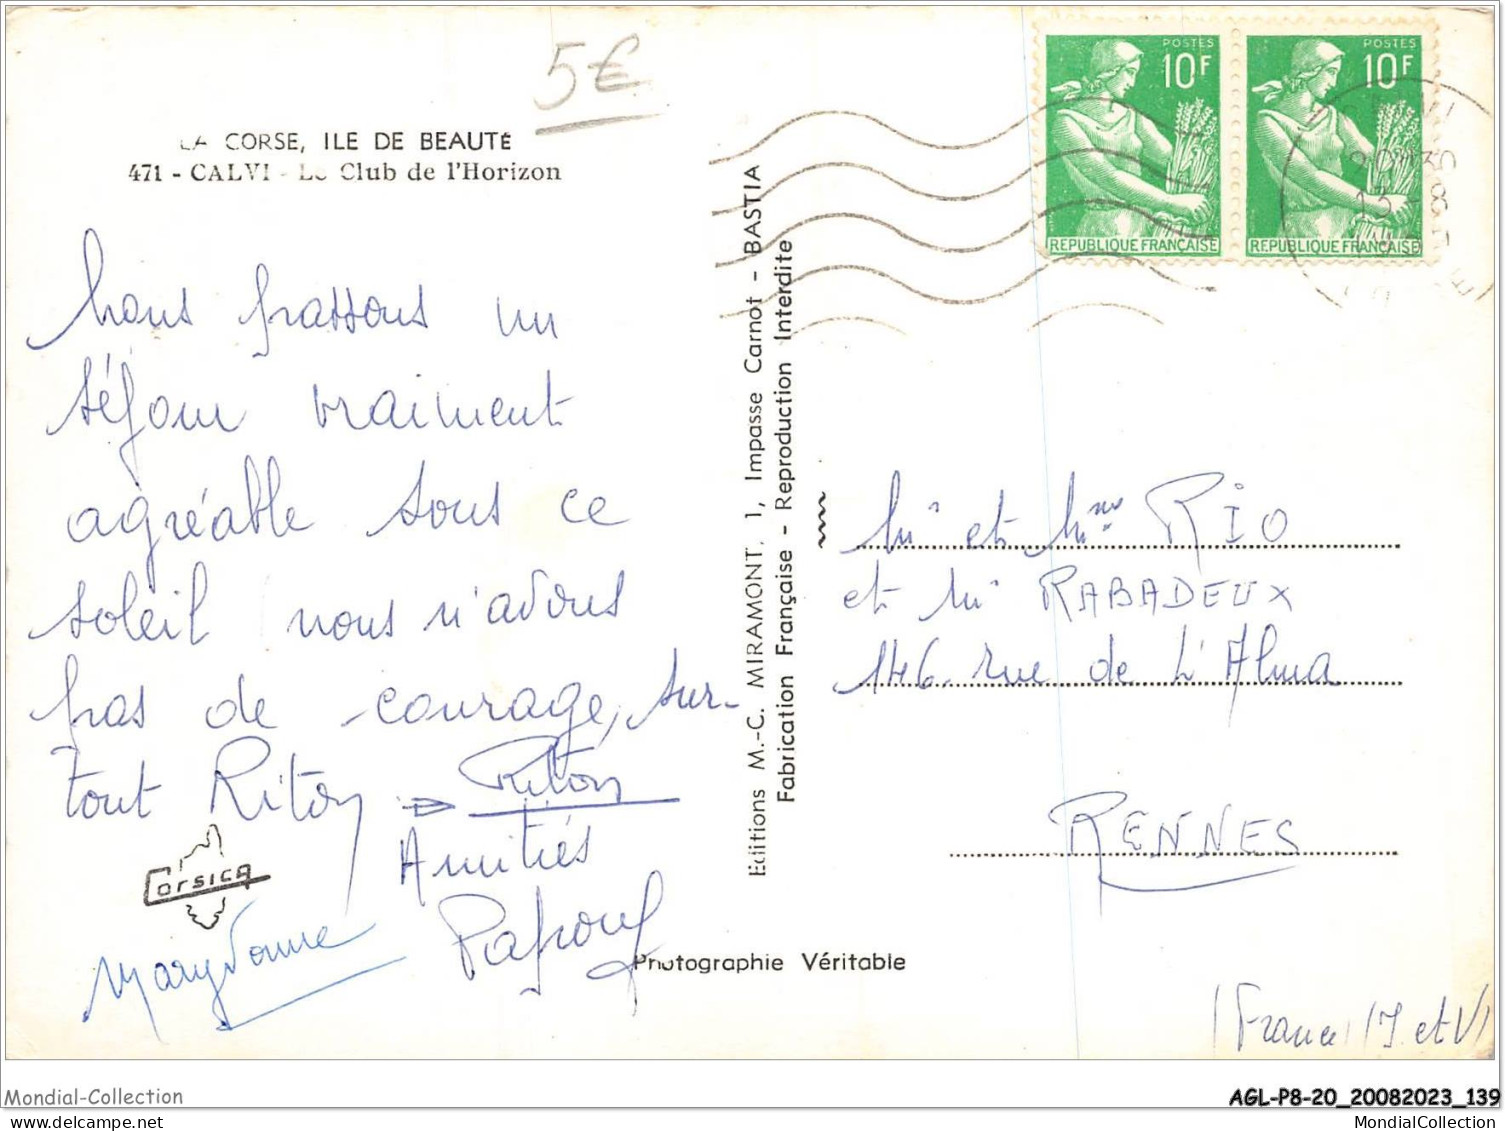 5€
LA CORSE, ILE DE BEAUTÉ
471 - CALVI - Le Club de l'Horizon
Nous passons un
séjour vraiment
agréable sous ce
soleil nous n'avons
pas de courage, sur-
tout Riton → Riton
Amitiés
Papouf
Maryvonne
Corsica
Editions M.-C. MIRAMONT, 1, Impasse Carnot - BASTIA
Fabrication Française - Reproduction Interdite
Photographie Véritable
POSTES
10F
REPUBLIQUE FRANÇAISE
POSTES
10F
REPUBLIQUE FRANÇAISE
13 - 8
Mr et Mme RIO
et Mr RABADEUX
146. rue de L'Alma
RENNES
(France) (I. et V)
Mondial-Collection
AGL-P8-20_20082023_139
www.delcampe.net
MondialCollection